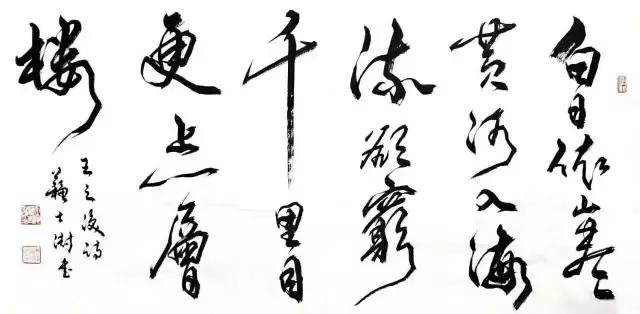 白日依山尽
黄河入海
流欲窮
千里目
更上一層
楼
王之涣诗
蘇士澍书